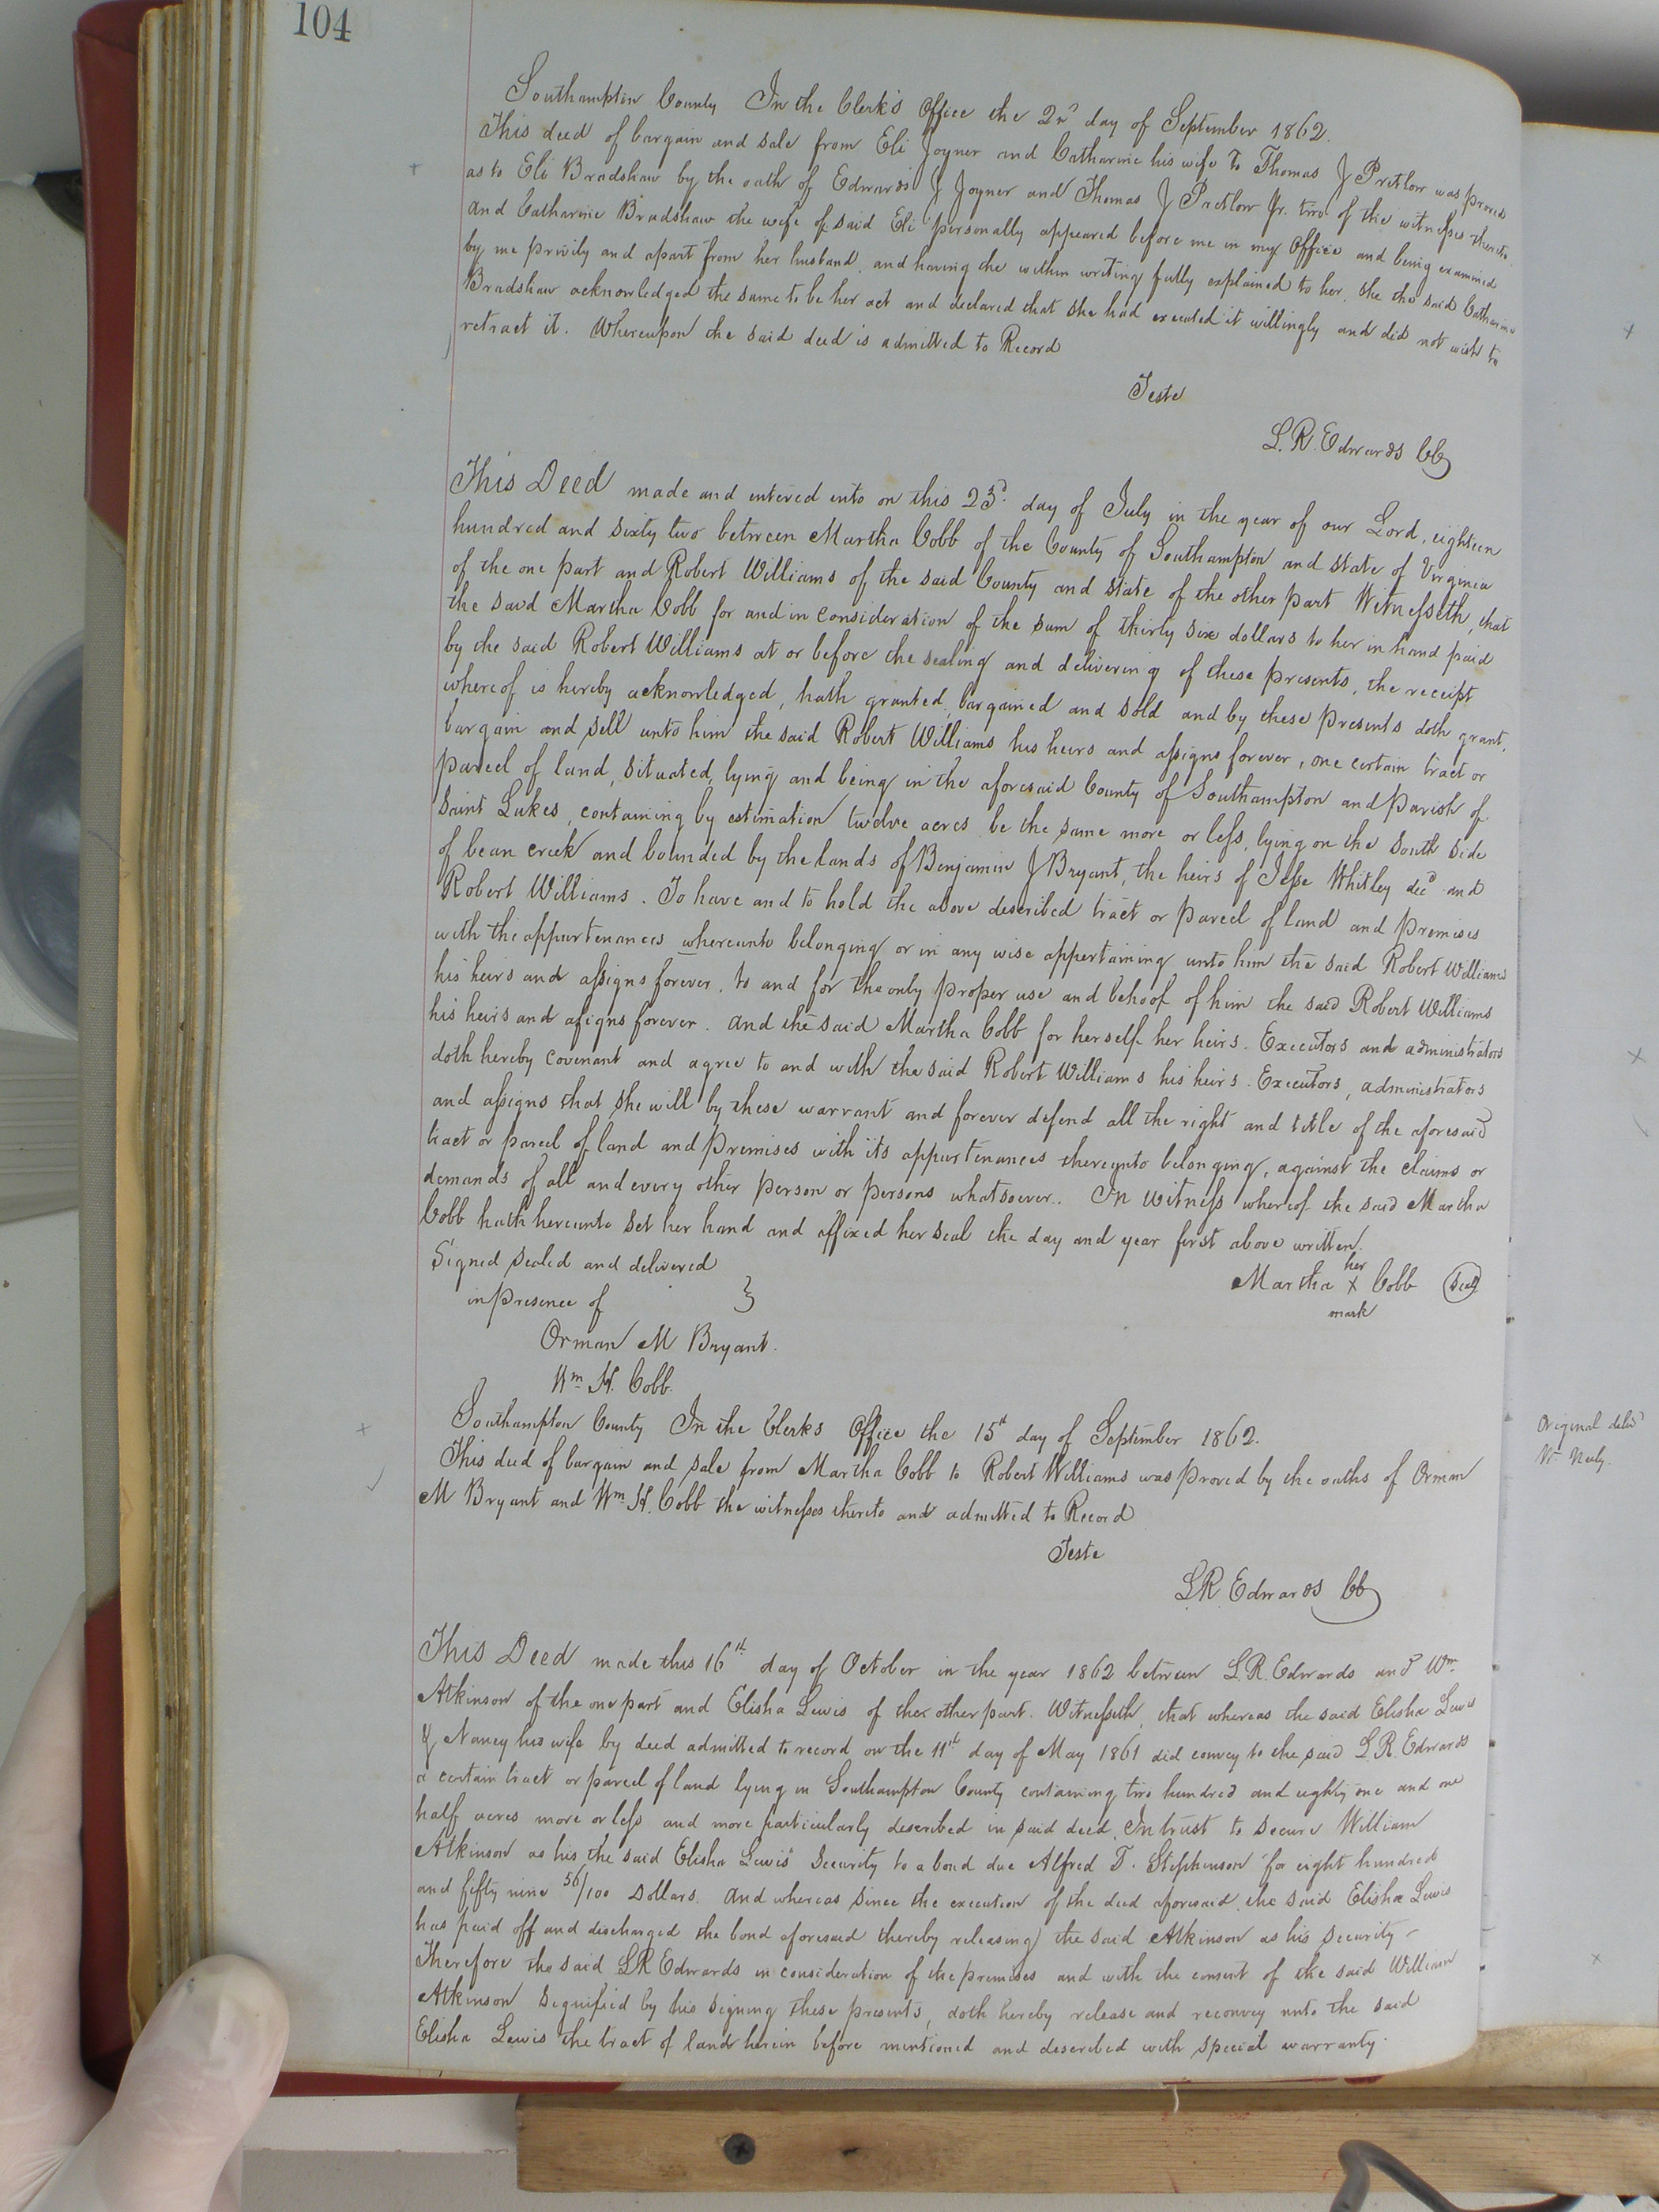 104
Southampton County In the Clerk's Office the 2nd day of September 1862.
This deed of bargain and sale from Eli Joyner and Catharine his wife to Thomas J Pretlow was proved
as to Eli Bradshaw by the oath of Edwards J Joyner and Thomas J Pretlow Jr. two of the witnesses thereto.
And Catharine Bradshaw the wife of said Eli personally appeared before me in my Office and being examined
by me privily and apart from her husband, and having the within writing fully explained to her, she the said Catharine
Bradshaw acknowledged the same to be her act and declared that she had executed it willingly and did not wish to
retract it. Whereupon the said deed is admitted to Record
Teste
L.R. Edwards CC
This Deed made and entered into on this 23d. day of July in the year of our Lord, eighteen
hundred and sixty two between Martha Cobb of the County of Southampton and State of Virginia
of the one part and Robert Williams of the said County and State of the other part Witnesseth, that
the said Martha Cobb for and in consideration of the sum of thirty six dollars to her in hand paid
by the said Robert Williams at or before the sealing and delivering of these presents, the receipt
whereof is hereby acknowledged, hath granted, bargained and sold and by these presents doth grant,
bargain and sell unto him the said Robert Williams his heirs and assigns forever, one certain tract or
parcel of land, situated, lying and being in the aforesaid County of Southampton and Parish of
Saint Lukes, containing by estimation twelve acres be the same more or less, lying on the South side
of bean creek and bounded by the lands of Benjamin J Bryant, the heirs of Jesse Whitley decd and
Robert Williams. To have and to hold the above described tract or parcel of land and premises
with the appurtenances whereunto belonging or in any wise appertaining unto him the said Robert Williams
his heirs and assigns forever, to and for the only proper use and behoof of him the said Robert Williams
his heirs and asigns forever. And the said Martha Cobb for herself her heirs. Executors and administrators
doth hereby covenant and agree to and with the said Robert Williams his heirs. Executors, administrators
and assigns that she will by these warrant and forever defend all the right and title of the aforesaid
tract or parcel of land and premises with its appurtenances thereunto belonging, against the claims or
demands of all and every other person or persons whatsoever. In Witness whereof the said Martha
Cobb hath hereunto set her hand and affixed her seal the day and year first above written.
Signed sealed and delivered
in presence of }
her
Martha X Cobb Seal
mark
Orman M Bryant.
Wm H. Cobb.
Southampton County In the Clerks Office the 15th day of September 1862.
This deed of bargain and sale from Martha Cobb to Robert Williams was proved by the oaths of Orman
M Bryant and Wm H. Cobb the witnesses thereto and admitted to Record
Teste
L.R. Edwards CC
This Deed made this 16th day of October in the year 1862 between L.R. Edwards and Wm
Atkinson of the one part and Elisha Lewis of the other part. Witnesseth, that whereas the said Elisha Lewis
& Nancy his wife by deed admitted to record on the 11th day of May 1861 did convey to the said L.R. Edwards
a certain tract or parcel of land lying in Southampton County containing two hundred and eighty one and one
half acres more or less and more particularly described in said deed, In trust to secure William
Atkinson as his the said Elisha Lewis' Security to a bond due Alfred T. Stephenson for eight hundred
and fifty nine 56/100 Dollars. And whereas since the execution of the deed aforesaid, the said Elisha Lewis
has paid off and discharged the bond aforesaid thereby releasing the said Atkinson as his security -
Therefore the said L.R. Edwards in consideration of the premises and with the consent of the said William
Atkinson signified by his signing these presents, doth hereby release and reconvey unto the said
Elisha Lewis the tract of land herein before mentioned and described with special warranty.
Original deld